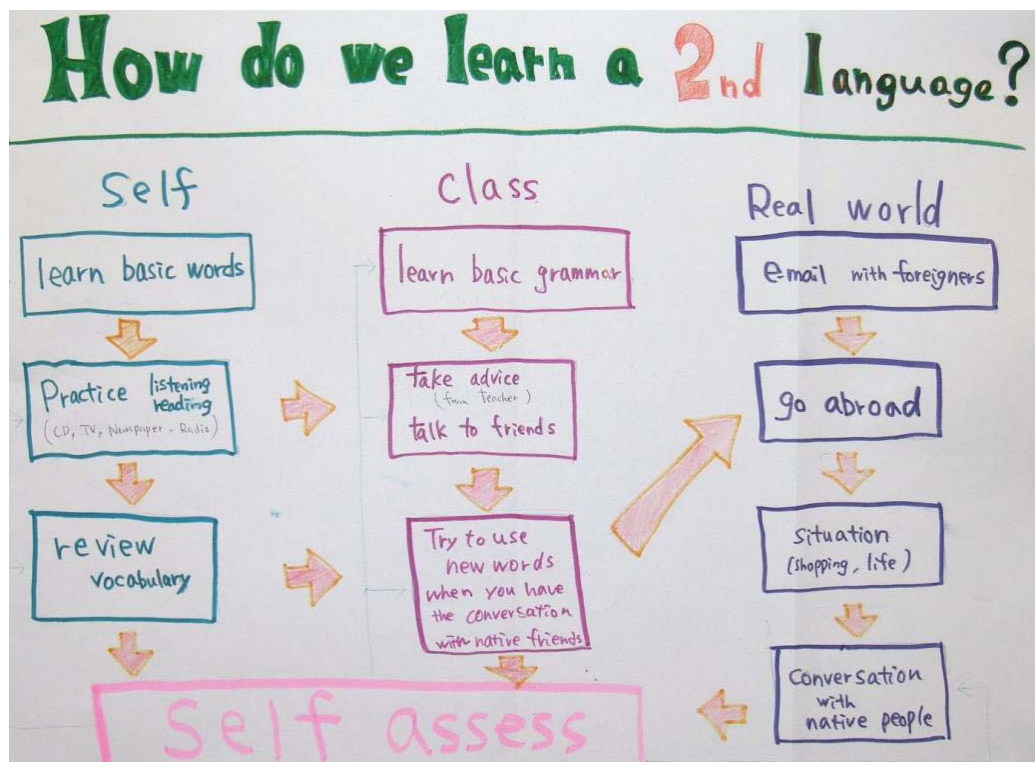 How do we learn a 2nd language?
Self
learn basic words
Practice listening
reading
(CD, TV, Newspaper, Radio)
review
vocabulary
Class
learn basic grammar
take advice
(from teacher)
talk to friends
Try to use
new words
when you have
the conversation
with native friends
Real world
e-mail with foreigners
go abroad
situation
(shopping, life)
conversation
with
native people
Self assess